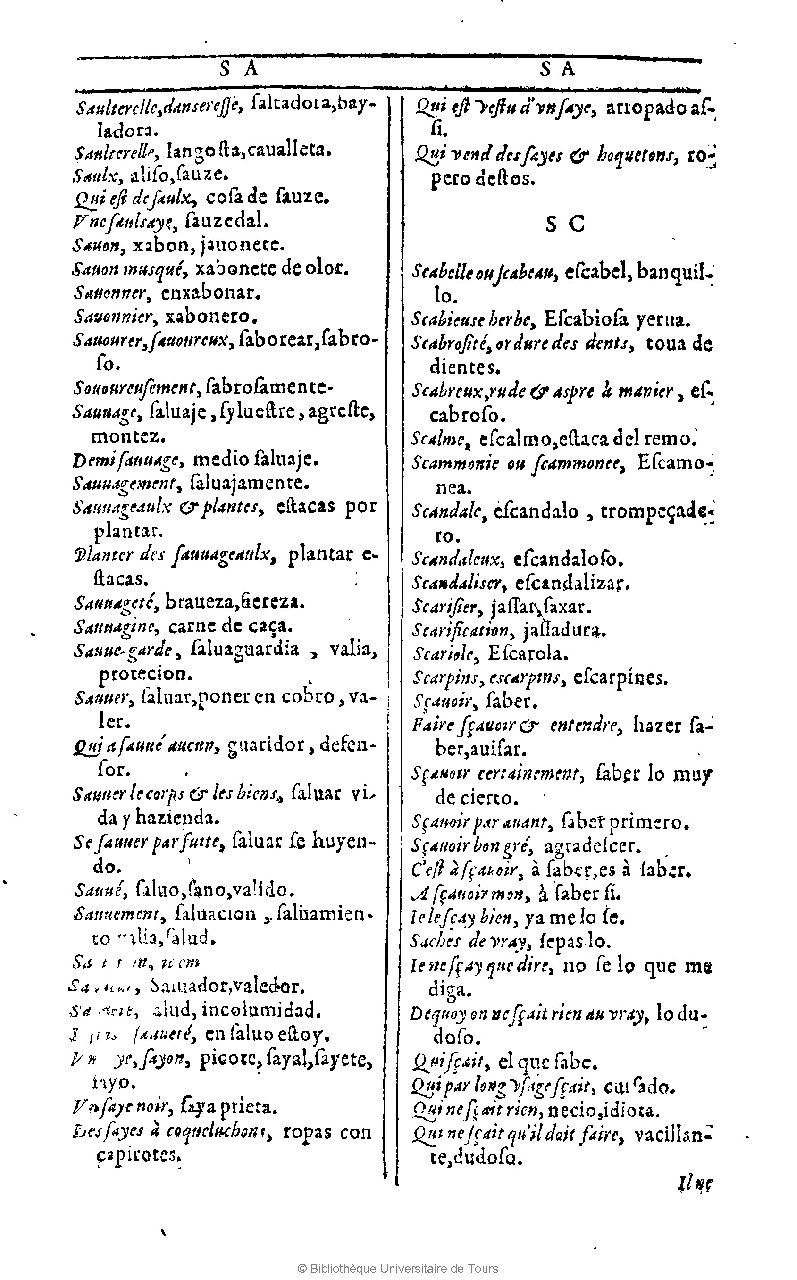 S A
Saulterelle, danseresse, ſaltadora, bay-
ladora.
Saulterelle, langoſta, caualleta.
Saulx, aliſo, ſauze.
Qui eſt de ſaulx, coſa de ſauze.
Vne ſaulsaye, ſauzedal.
Sauon, xabon, jauonete.
Sauon musqué, xabonete de olor.
Sauonner, enxabonar.
Sauonnier, xabonero.
Sauourer, ſauoureux, ſaborear, ſabro-
ſo.
Sououreuſement, ſabroſamente-
Sauuage, ſaluaje, ſylueſtre, agreſte,
montez.
Demi ſauuage, medio ſaluaje.
Sauuagement, ſaluajamente.
Sauuageaulx & plantes, eſtacas por
plantar.
Planter des ſauuageaulx, plantar e-
ſtacas.
Sauuageté, braueza, fiereza.
Sauuagine, carne de caça.
Sauue-garde, ſaluaguardia, valia,
protecion.
Sauuer, ſaluar, poner en cobro, va-
ler.
Qui a ſauué aucun, guaridor, defen-
ſor.
Sauuer le corps & les biens, ſaluar vi-
da y hazienda.
Se ſauuer par fuite, ſaluar ſe huyen-
do.
Sauué, ſaluo, ſano, valido.
Sauuement, ſaluacion, ſaluamien-
to ſalud.
Saluador, valedor.
incolumidad.
ſauueté, en ſaluo eſtoy.
ſayon, picote, ſayal, ſayete,
Vn ſaye noir, ſaya prieta.
Des ſayes à coqueluchons, ropas con
capirotes.
S A
Qui eſt veſtu d'vn ſaye, arropado aſ-
ſi.
Qui vend des ſayes & hoquetons, ro-
pero deſtos.
S C
Scabelle ou ſcabeau, eſcabel, banquil-
lo.
Scabieuse herbe, Eſcabioſa yerua.
Scabroſité, ordure des dents, toua de
dientes.
Scabreux, rude & aspre à manier, eſ-
cabroſo.
Scalme, eſcalmo, eſtaca del remo.
Scammonie ou ſcammonee, Eſcamo-
nea.
Scandale, eſcandalo, trompeçade-
ro.
Scandaleux, eſcandaloſo.
Scandaliser, eſcandalizar.
Scarifier, jaſſar, ſaxar.
Scarification, jaſſadura.
Scariole, Eſcarola.
Scarpins, escarpins, eſcarpines.
Sçauoir, ſaber.
Faire ſçauoir & entendre, hazer ſa-
ber, auiſar.
Sçauoir certainement, ſaber lo muy
de cierto.
Sçauoir par auant, ſaber primero.
Sçauoir bon gré, agradeſcer.
C'eſt à ſçauoir, à ſaber, es à ſaber.
A ſçauoir mon, à ſaber ſi.
Ie le ſçay bien, ya me lo ſe.
Saches de vray, ſepas lo.
Ie ne ſçay que dire, no ſe lo que me
diga.
Dequoy on ne ſçait rien au vray, lo du-
doſo.
Qui ſçait, el que ſabe.
Qui par long vſage ſçait, curſado.
Qui ne ſçait rien, necio, idiota.
Qui ne ſçait qu'il doit faire, vacillan-
te, dudoſo.
Il ne
© Bibliothèque Universitaire de Tours